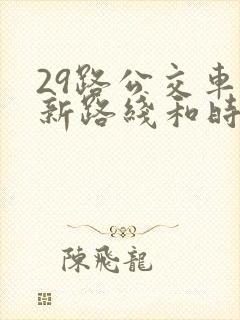 29路公交車
新路綫和時
陳飛龍